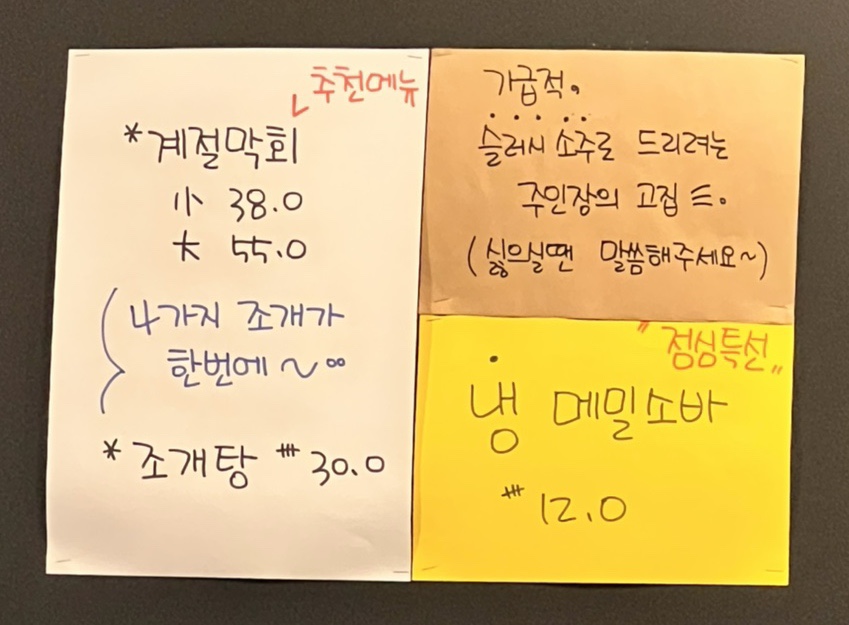 추천메뉴
*계절막회
小 38.0
大 55.0
4가지 조개가
한번에~∞
*조개탕 # 30.0
가급적.
슬러시 소주로 드리려는
주인장의 고집 ミ.
(싫으실땐 말씀해주세요~)
"점심특선"
냉 메밀소바
# 12.0